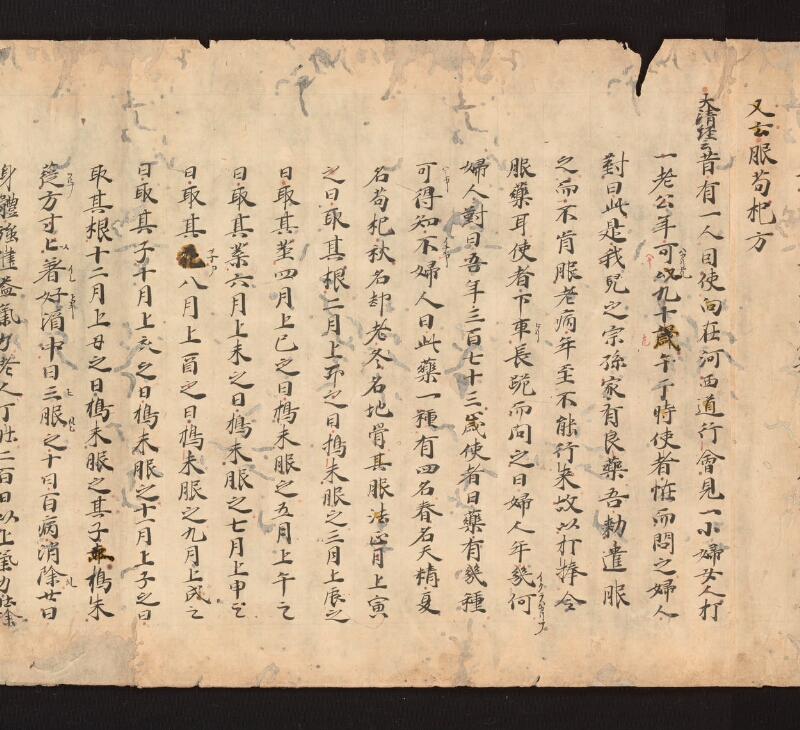 又云服苟杞方
大清経云昔有一人因使向在河西道行會見一小婦女人打
一老公年可八九十歳午于時使者恠而問之婦人
對曰此是我兒之宗孫家有良藥吾勅遣服
之而不肯服老病年至不能行来故以打捧令
服藥耳使者下車長跪而問之曰婦人年幾何
婦人對曰吾年三百七十三歳使者曰藥有幾種
可得知不婦人曰此藥一種有四名春名天精夏
名苟杞秋名却老冬名地骨其服法正月上寅
之日取其根二月上卯之日搗末服之三月上辰之
日取其莖四月上巳之日搗末服之五月上午之
日取其葉六月上未之日搗末服之七月上申之
日取其花八月上酉之日搗末服之九月上戌之
日取其子十月上亥之日搗末服之十一月上子之日
取其根十二月上丑之日搗末服之其子搗末
蓰方寸匕著好酒中日三服之十日百病消除廿日
身體強健益氣力老人丁壮二百日以上氣力